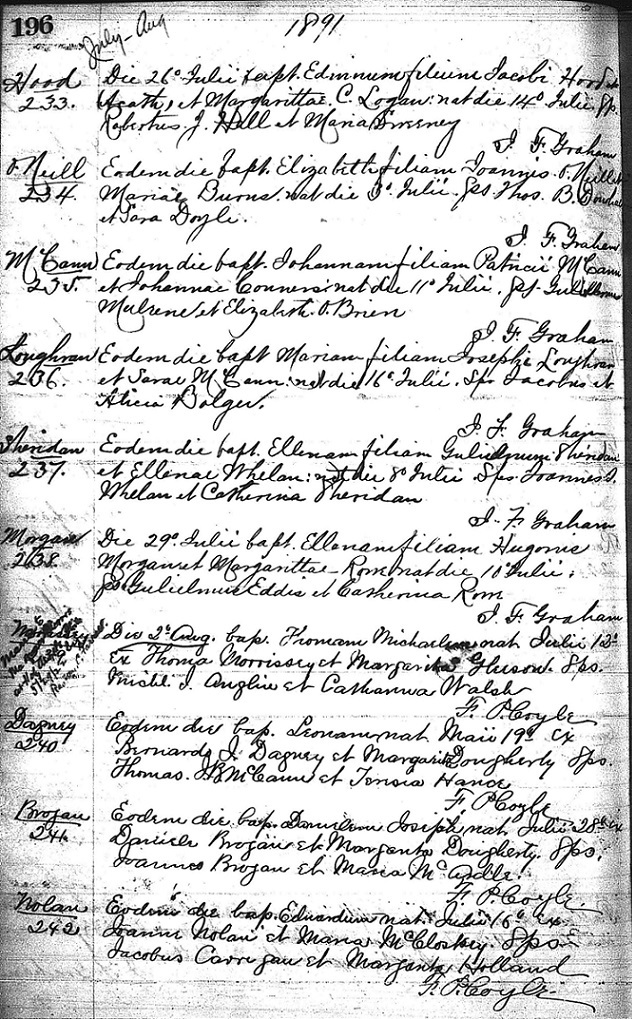 196
July - Aug
1891
Hood
233.
Die 26° Julii bapt. Edmnum filium Jacobi Hood
Heath, et Margarittae C. Logan: nat die 14° Julii Sps.
Robertus J. Hall et Maria Sweeney
J. F. Graham
O'Neill
234.
Eodem die bapt. Elizabeth filiam Joannis O'Neill et
Mariae Burns. nat die 5° Julii. Sps Thos. B.
et Sara Doyle.
J. F. Graham
McCann
235.
Eodem die bapt. Johannam filiam Patricii McCann
et Johannae Conners nat die 11° Julii. Sps Gulielmus
Mulrene et Elizabeth O'Brien
J. F. Graham
Loughran
236.
Eodem die bapt Mariam filiam Josephi Loughran
et Sarae McCann: nat die 16° Julii. Sps Jacobus et
Alicia Bolger.
J. F. Graham
Sheridan
237.
Eodem die bapt. Ellenam filiam Gulielmum Sheridan
et Ellenae Whelan: nat die 8° Julii Sps Joannes J.
Whelan et Catherina Sheridan
J. F. Graham
Morgan
238.
Die 29° Julii bapt. Ellenam filiam Hugonis
Morgan et Margarittae Rom nat die 10 Julii:
Sps Gulielmus Eddis et Catherina Rom
J. F. Graham
Morrissey
Die 2° Aug. bap. Thomam Michaelem nat Julii 12°
Ex Thoma Morrissey et Margarita Gleeson. Sps.
Michl. J. Anglin et Catharina Walsh
F. P. Coyle
Dagney
240
Eodem die bap. Leonam nat Maii 19° Ex
Bernardo J. Dagney et Margarita Dougherty Sps.
Thomas McCann et Teresia Hance
F. P. Coyle
Brogan
241
Eodem die bap. Danielem Joseph nat Julii 28° ex
Daniele Brogan et Margarita Dougherty. Sps.
Joannes Brogan et Maria McArdle.
F. P. Coyle.
Nolan
242
Eodem die bap. Eduardum nat. Julii 16° ex
Joanne Nolan et Maria McCloskey. Sps
Jacobus Carrigan et Margarita Holland
F. P. Coyle